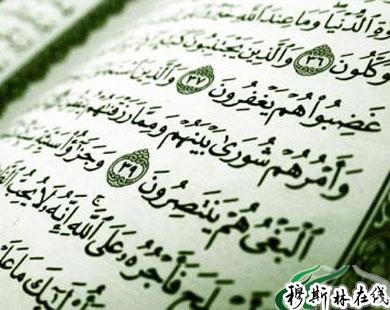 الدُّنْيَا وَمَا عِندَ اللَّهِ
وَكَّلُونَ ٣٦ وَالَّذِينَ يَجْتَنِبُونَ
غَضِبُوا هُمْ يَغْفِرُونَ ٣٧ وَالَّذِينَ
وَأَمْرُهُمْ شُورَىٰ بَيْنَهُمْ وَمِمَّا رَزَقْنَٰهُمْ
الْبَغْيُ هُمْ يَنتَصِرُونَ ٣٩ وَجَزَٰٓؤُا سَيِّئَةٍ
لَحَ فَأَجْرُهُ عَلَى اللَّهِ إِنَّهُ لَا يُحِبُّ
ئِكَ مَا عَلَ
穆斯林在线